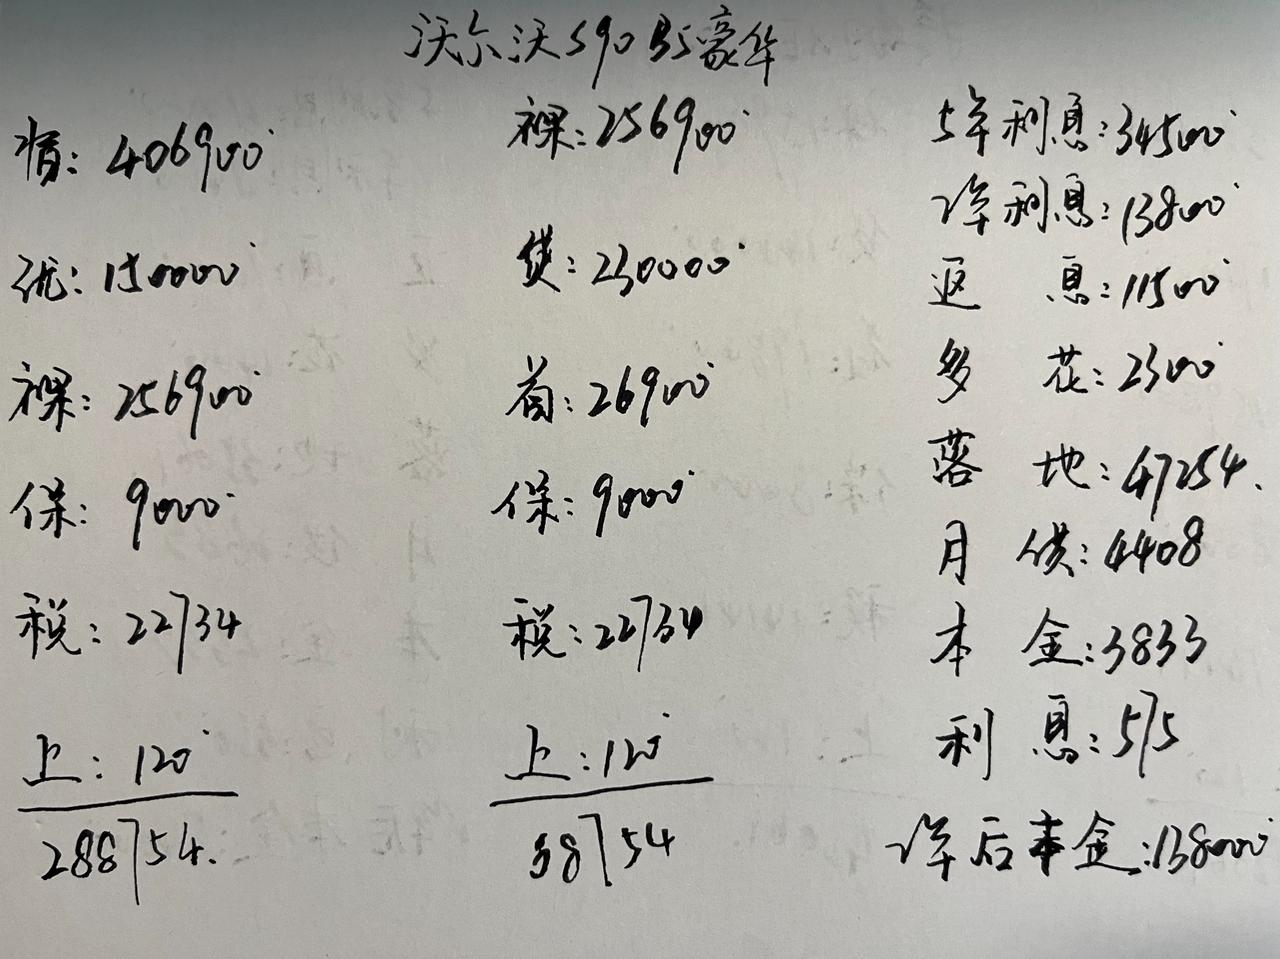 沃尔沃S90 B5豪华
指: 406900
优: 150000
裸: 256900
保: 9000
税: 22734
上: 120
288754.
裸: 256900
贷: 230000
首: 26900
保: 9000
税: 22734
上: 120
58754
5年利息: 34500
2年利息: 13800
返 息: 11500
多 花: 2300
落 地: 47254.
月 供: 4408
本 金: 3833
利 息: 575
2年后本金: 138000